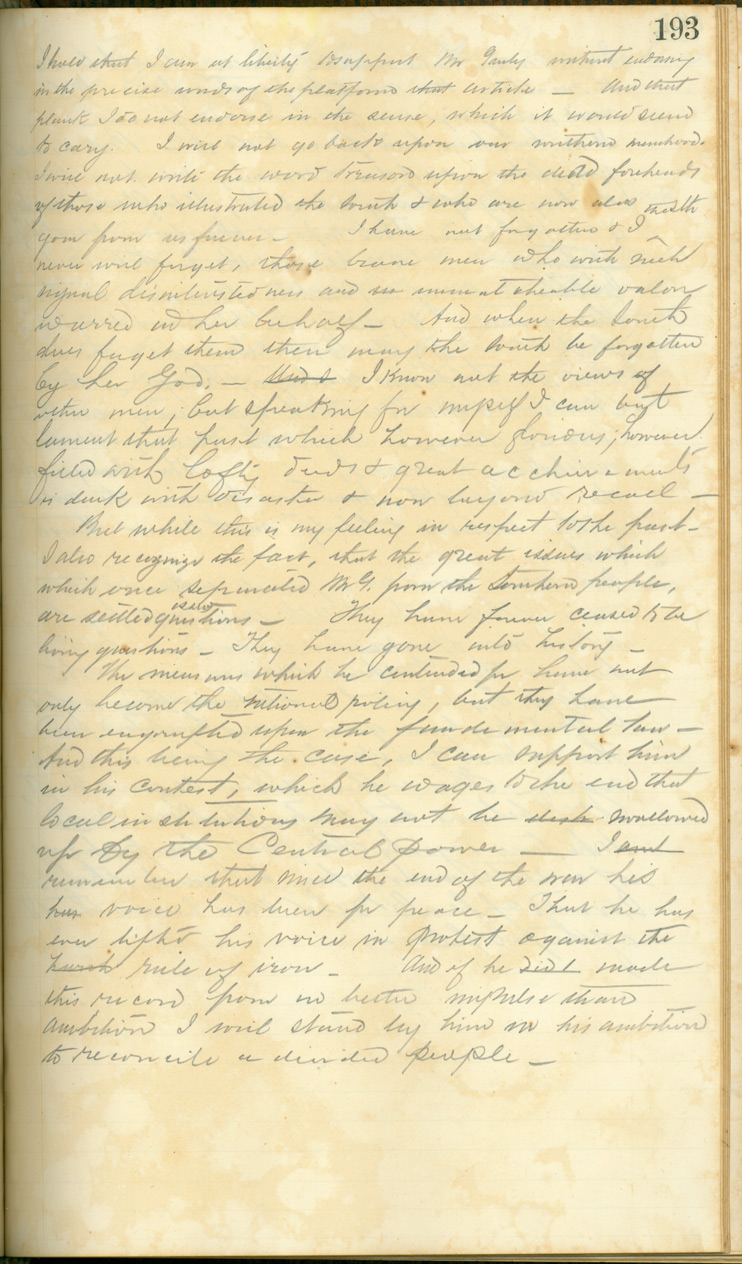 193
I hold that I am at liberty to support Mr Greely without endorsing
in the precise words of the platform that article — And that
plank I do not endorse in the sense, which it would seem
to cary. I will not go back upon our southern manhood.
I will not write the word treason upon the dead foreheads
of those who illustrated the South & who are now alas
gone from us forever — I have not forgotten & I
never will forget, those brave men who with such
signal disinterestedness and unmatchable valor
warred in her behalf — And when the South
does forget them then may the South be forgotten
by her God. — I know not the views of
other men, but speaking for myself I can but
lament that past which however glorious, however
filled with lofty deeds & great acchievements
is dark with disaster & now beyond recall —
But while this is my feeling in respect to the past —
I also recognize the fact, that the great issues which
which once separated Mr G. from the Southern people,
are settled questions — They have forever ceased to be
living questions — They have gone into history —
The measures which he contended for have not
only become the national policy, but they have
been engrafted upon the fundamental law —
And this being the case, I can support him
in his contest, which he wages to the end that
local institutions may not be swallowed
up by the Central power — I
remember that since the end of the war his
voice has been for peace — That he has
ever lifted his voice in protest against the
rule of iron — And if he made
this record from no better impulse than
ambition I will stand by him in his ambition
to reconcile a divided people —